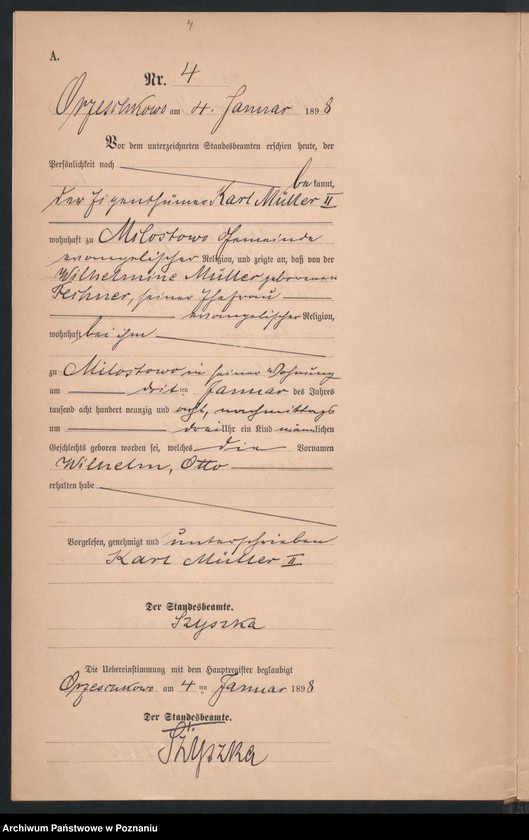 4
A.
Nr. 4
Orzeschkowo am 4. Januar 1898
Vor dem unterzeichneten Standesbeamten erschien heute, der
Persönlichkeit nach
bekannt,
der Eigenthümer Karl Müller II
wohnhaft zu Milostowo Gemeinde
evangelischer Religion, und zeigte an, daß von der
Wilhelmine Müller geborenen
Fechner, seiner Ehefrau
evangelischer Religion,
wohnhaft bei ihm
zu Milostowo in seiner Wohnung
am dritten Januar des Jahres
tausend acht hundert neunzig und acht, nachmittags
um drei Uhr ein Kind männlichen
Geschlechts geboren worden sei, welches die Vornamen
Wilhelm, Otto
erhalten habe
Vorgelesen, genehmigt und unterschrieben
Karl Müller II
Der Standesbeamte.
Szyszka
Die Uebereinstimmung mit dem Hauptregister beglaubigt
Orzeschkowo am 4ten Januar 1898
Der Standesbeamte.
Szyszka
Archiwum Państwowe w Poznaniu